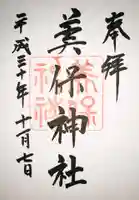 奉拝
美保神社
平成三十年十一月七日